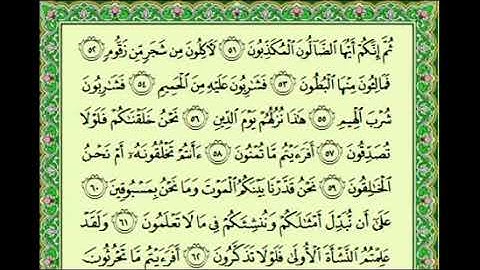 ثُمَّ إِنَّكُمْ أَيُّهَا الضَّالُّونَ الْمُكَذِّبُونَ ٥١ لَآكِلُونَ مِن شَجَرٍ مِّن زَقُّومٍ ٥٢
فَمَالِئُونَ مِنْهَا الْبُطُونَ ٥٣ فَشَارِبُونَ عَلَيْهِ مِنَ الْحَمِيمِ ٥٤ فَشَارِبُونَ
شُرْبَ الْهِيمِ ٥٥ هَذَا نُزُلُهُمْ يَوْمَ الدِّينِ ٥٦ نَحْنُ خَلَقْنَاكُمْ فَلَوْلَا
تُصَدِّقُونَ ٥٧ أَفَرَءَيْتُم مَّا تُمْنُونَ ٥٨ ءَأَنتُمْ تَخْلُقُونَهُ أَمْ نَحْنُ
الْخَالِقُونَ ٥٩ نَحْنُ قَدَّرْنَا بَيْنَكُمُ الْمَوْتَ وَمَا نَحْنُ بِمَسْبُوقِينَ ٦٠
عَلَىٰ أَن نُّبَدِّلَ أَمْثَالَكُمْ وَنُنشِئَكُمْ فِي مَا لَا تَعْلَمُونَ ٦١ وَلَقَدْ
عَلِمْتُمُ النَّشْأَةَ الْأُولَىٰ فَلَوْلَا تَذَكَّرُونَ ٦٢ أَفَرَءَيْتُم مَّا تَحْرُثُونَ